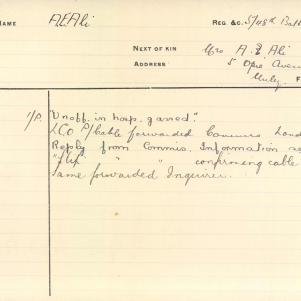 NAME A.E. Ali REG. &c. 5/48th Batt
NEXT OF KIN Mrs A. E. Ali
ADDRESS 5 Opie Avenue
Unley. F
"Unoff. in hosp. gassed."
LCO P/Cable forwarded Commrs Lond
Reply from Commis. Information
" " " confirming cable
Same forwarded Inquirer.